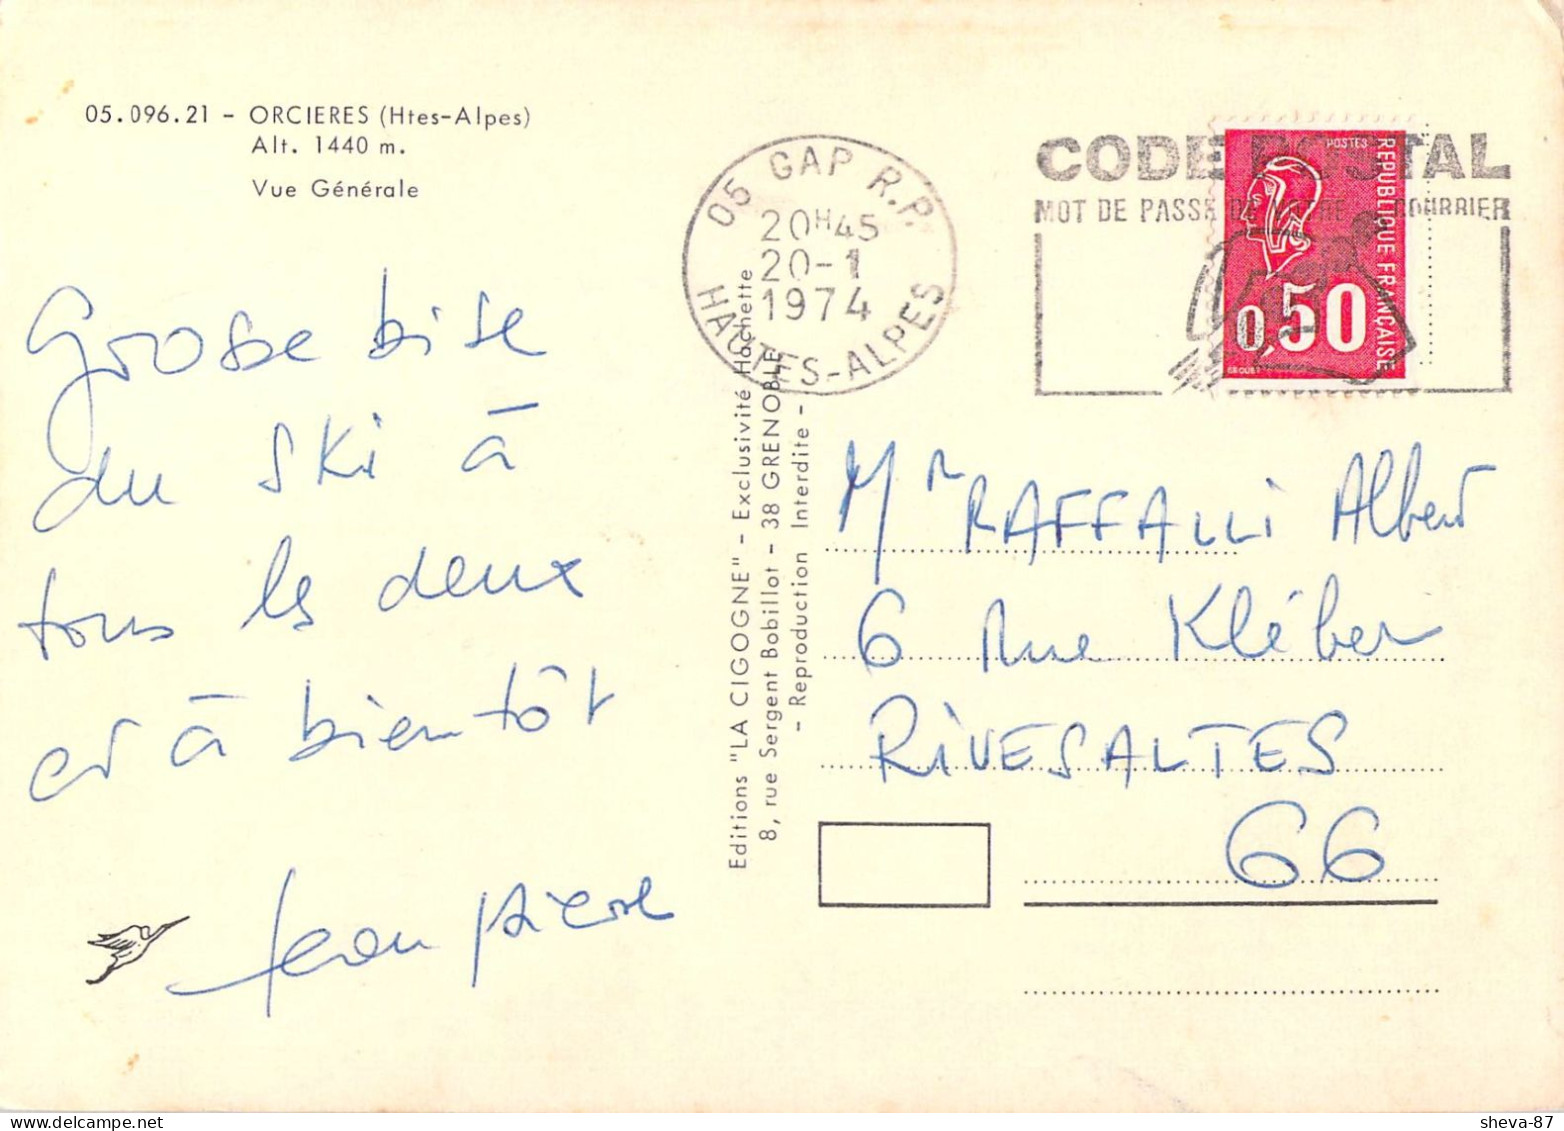 05.096.21 - ORCIERES (Htes-Alpes)
Alt. 1440 m.
Vue Générale
Grosse bise
du ski à
tous les deux
et à bientôt
Jean pierre
Editions "LA CIGOGNE" - Exclusivité Hachette
8, rue Sergent Bobillot - 38 GRENOBLE
- Reproduction Interdite -
05 GAP R.P.
20H45
20-1
1974
HAUTES-ALPES
CODE POSTAL
MOT DE PASSE DE VOTRE COURRIER
POSTES
REPUBLIQUE FRANÇAISE
0,50
Mr RAFFALLI Albert
6 Rue Kléber
RIVESALTES
66
sheva-87